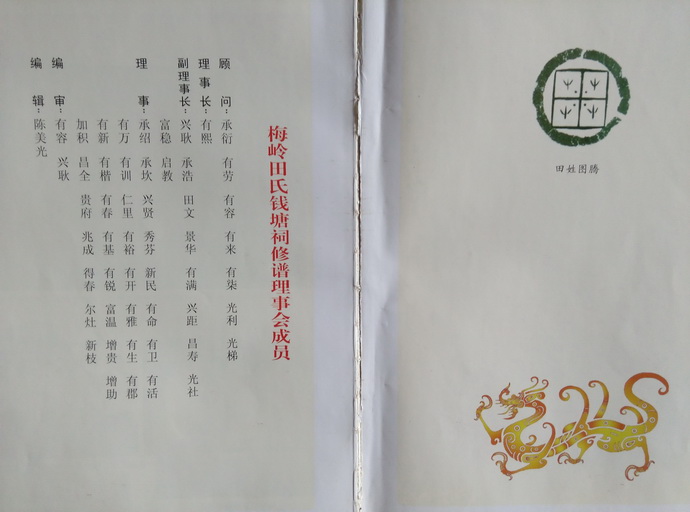 梅岭田氏钱塘祠修谱理事会成员
顾问：承衍 有劳 有容 有来 有柒 光利 光梯
理事长：有熙
副理事长：兴耿 承浩 田文 景华 有满 兴距 昌寿 光社
富稳 启教
理事：承绍 承坎 兴贤 秀芬 新民 有命 有卫 有活
有万 有训 仁里 有裕 有开 有雅 有生 有郡
有新 有楷 有春 有基 有锐 富温 增贵 增助
加积 昌全 贵府 兆成 得春 尔灶 新枝
编审：有容 兴耿
编辑：陈美光
田姓图腾